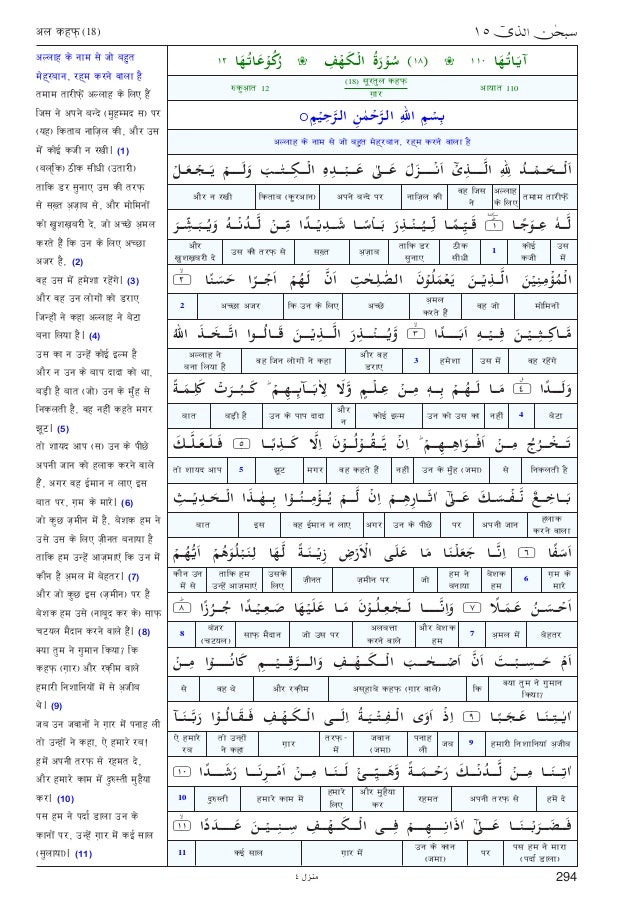 अल कहफ़ (18)
سبحٰن الذی ١٥
अल्लाह के नाम से जो बहुत
मेहरबान, रहम करने वाला है
तमाम तारीफ़ें अल्लाह के लिए हैं
जिस ने अपने बन्दे (मुहम्मद स) पर
(यह) किताब नाज़िल की, और उस
में कोई कजी न रखी। (1)
(बल्कि) ठीक सीधी (उतारी)
ताकि डर सुनाए उस की तरफ़
से सख़्त अज़ाब से, और मोमिनों
को ख़ुशख़बरी दे, जो अच्छे अमल
करते हैं कि उन के लिए अच्छा
अजर है, (2)
वह उस में हमेशा रहेंगे। (3)
और वह उन लोगों को डराए
जिन्हों ने कहा अल्लाह ने बेटा
बना लिया है। (4)
उस का न उन्हें कोई इल्म है
और न उन के बाप दादा को था,
बड़ी है बात (जो) उन के मुँह से
निकलती है, वह नहीं कहते मगर
झूट। (5)
तो शायद आप (स) उन के पीछे
अपनी जान को हलाक करने वाले
हैं, अगर वह ईमान न लाए इस
बात पर, ग़म के मारे। (6)
जो कुछ ज़मीन में है, बेशक हम ने
उसे उस के लिए ज़ीनत बनाया है
ताकि हम उन्हें आज़माएं कि उन में
कौन है अमल में बेहतर। (7)
और जो कुछ इस (ज़मीन) पर है
बेशक हम उसे (नाबूद कर के) साफ़
चटयल मैदान करने वाले हैं। (8)
क्या तुम ने गुमान किया? कि
कहफ़ (ग़ार) और रकीम वाले
हमारी निशानियों में से अजीब
थे। (9)
जब उन जवानों ने ग़ार में पनाह ली
तो उन्हों ने कहा, ऐ हमारे रब!
हमें अपनी तरफ़ से रहमत दे,
और हमारे काम में दुरुस्ती मुहैया
कर। (10)
पस हम ने पर्दा डाला उन के
कानों पर, उन्हें ग़ार में कई साल
(सुलाया)। (11)
اٰيَاتُهَا ١١٠ ❀ (١٨) سُوْرَةُ الْكَهْفِ ❀ رُكُوْعَاتُهَا ١٢
रुकुआत 12 (18) सूरतुल कहफ़ ग़ार आयात 110
بِسْمِ اللهِ الرَّحْمٰنِ الرَّحِيْمِ ○
अल्लाह के नाम से जो बहुत मेहरबान, रहम करने वाला है
اَلْحَمْدُ لِلّٰهِ الَّذِىْٓ اَنْزَلَ عَلٰى عَبْدِهِ الْكِتٰبَ وَلَمْ يَجْعَلْ
और न रखी | किताब (कुरआन) | अपने बन्दे पर | नाज़िल की | वह जिस ने | अल्लाह के लिए | तमाम तारीफ़ें
لَّهٗ عِوَجًا ١ قَيِّمًا لِّيُنْذِرَ بَاْسًا شَدِيْدًا مِّنْ لَّدُنْهُ وَيُبَشِّرَ
और ख़ुशख़बरी दे | उस की तरफ़ से | सख़्त | अज़ाब | ताकि डर सुनाए | ठीक सीधी | 1 | कोई कजी | उस में
الْمُؤْمِنِيْنَ الَّذِيْنَ يَعْمَلُوْنَ الصّٰلِحٰتِ اَنَّ لَهُمْ اَجْرًا حَسَنًا ٢
2 | अच्छा अजर | कि उन के लिए | अच्छे | अमल करते हैं | वह जो | मोमिनों
مَّاكِثِيْنَ فِيْهِ اَبَدًا ٣ وَّيُنْذِرَ الَّذِيْنَ قَالُوا اتَّخَذَ اللهُ
अल्लाह ने बना लिया है | वह जिन लोगों ने कहा | और वह डराए | 3 | हमेशा | उस में | वह रहेंगे
وَلَدًا ٤ مَا لَهُمْ بِهٖ مِنْ عِلْمٍ وَّلَا لِاٰبَآئِهِمْ كَبُرَتْ كَلِمَةً
बात | बड़ी है | उन के बाप दादा | और न | कोई इल्म | उन को उस का | नहीं | 4 | बेटा
تَخْرُجُ مِنْ اَفْوَاهِهِمْ اِنْ يَّقُوْلُوْنَ اِلَّا كَذِبًا ٥ فَلَعَلَّكَ
तो शायद आप | 5 | झूट | मगर | वह कहते हैं | नहीं | उन के मुँह (जमा) | से | निकलती है
بَاخِعٌ نَّفْسَكَ عَلٰٓى اٰثَارِهِمْ اِنْ لَّمْ يُؤْمِنُوْا بِهٰذَا الْحَدِيْثِ
बात | इस | वह ईमान न लाए | अगर | उन के पीछे | पर | अपनी जान | हलाक करने वाला
اَسَفًا ٦ اِنَّا جَعَلْنَا مَا عَلَى الْاَرْضِ زِيْنَةً لَّهَا لِنَبْلُوَهُمْ اَيُّهُمْ
कौन उन में से | ताकि हम उन्हें आज़माएं | उसके लिए | ज़ीनत | ज़मीन पर | जो | हम ने बनाया | बेशक हम | 6 | ग़म के मारे
اَحْسَنُ عَمَلًا ٧ وَاِنَّا لَجٰعِلُوْنَ مَا عَلَيْهَا صَعِيْدًا جُرُزًا ٨
8 | बंजर (चटयल) | साफ़ मैदान | जो उस पर | अलबत्ता करने वाले | और बेशक हम | 7 | अमल में | बेहतर
اَمْ حَسِبْتَ اَنَّ اَصْحٰبَ الْكَهْفِ وَالرَّقِيْمِ كَانُوْا مِنْ
से | वह थे | और रकीम | असहाबे कहफ़ (ग़ार वाले) | कि | क्या तुम ने गुमान किया?
اٰيٰتِنَا عَجَبًا ٩ اِذْ اَوَى الْفِتْيَةُ اِلَى الْكَهْفِ فَقَالُوْا رَبَّنَآ
ऐ हमारे रब | तो उन्हों ने कहा | ग़ार | तरफ़-में | जवान (जमा) | पनाह ली | जब | 9 | हमारी निशानियां अजीब
اٰتِنَا مِنْ لَّدُنْكَ رَحْمَةً وَّهَيِّئْ لَنَا مِنْ اَمْرِنَا رَشَدًا ١٠
10 | दुरुस्ती | हमारे काम में | हमारे लिए | और मुहैया कर | रहमत | अपनी तरफ़ से | हमें दे
فَضَرَبْنَا عَلٰٓى اٰذَانِهِمْ فِى الْكَهْفِ سِنِيْنَ عَدَدًا ١١
11 | कई साल | ग़ार में | उन के कान (जमा) | पर | पस हम ने मारा (पर्दा डाला)
منزل ٤
294